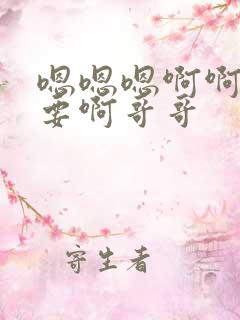 嗯嗯嗯啊啊
要啊哥哥
寄生者